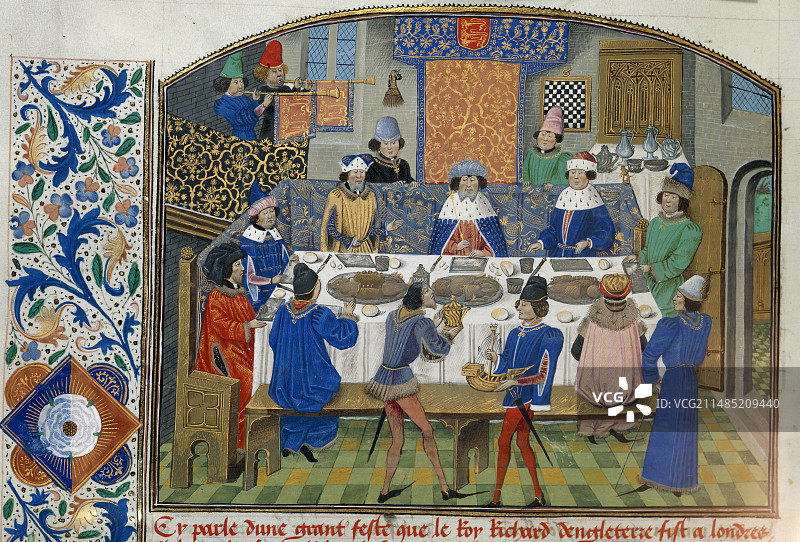 VCG
ID:VCG211485209440
Cy parle dune grant feste que le Roy Richard dengleterre fist a londres